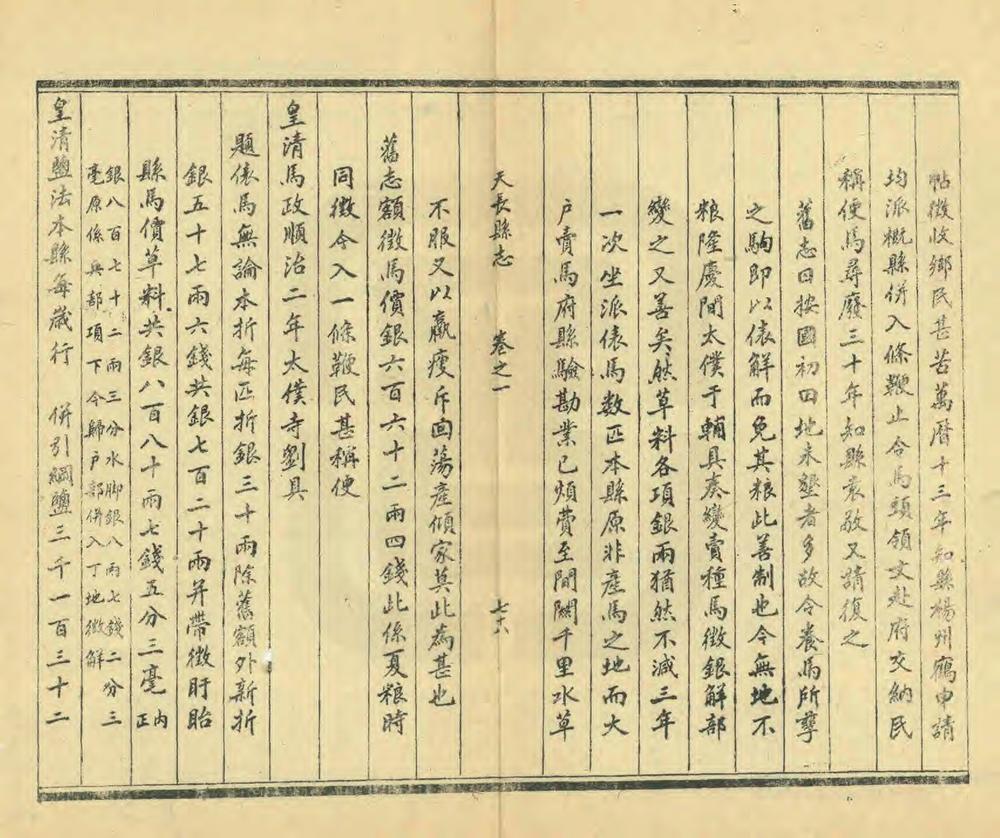 帖徵收鄉民甚苦萬曆十三年知縣楊州鶴申請
均派概縣併入條鞭止令馬頭領文赴府交納民
稱便馬尋廢三十年知縣袁敬又請復之
舊志曰按國初田地未墾者多故令養馬所孳
之駒即以俵解而免其粮此善制也今無地不
粮隆慶間太僕于輔具奏變賣種馬徵銀解部
變之又善矣然草料各項銀兩猶然不減三年
一次坐派俵馬数匹本縣原非產馬之地而大
户賣馬府縣驗勘業已煩費至間關千里水草
天長縣志 卷之一 七十八
不服又以羸瘦斥回蕩產傾家莫此為甚也
舊志額徵馬價銀六百六十二兩四錢此係夏粮時
同徵今入一條鞭民甚稱便
皇清馬政順治二年太僕寺劉具
題俵馬無論本折每匹折銀三十兩除舊額外新折
銀五十七兩六錢共銀七百二十兩并帶徵盱眙
縣馬價草料共銀八百八十兩七錢五分三毫內正
銀八百七十二兩三分水脚銀八兩七錢二分三
毫原係兵部項下今歸户部併入丁地徵解
皇清鹽法本縣每歲行 併引綱鹽三千一百三十二